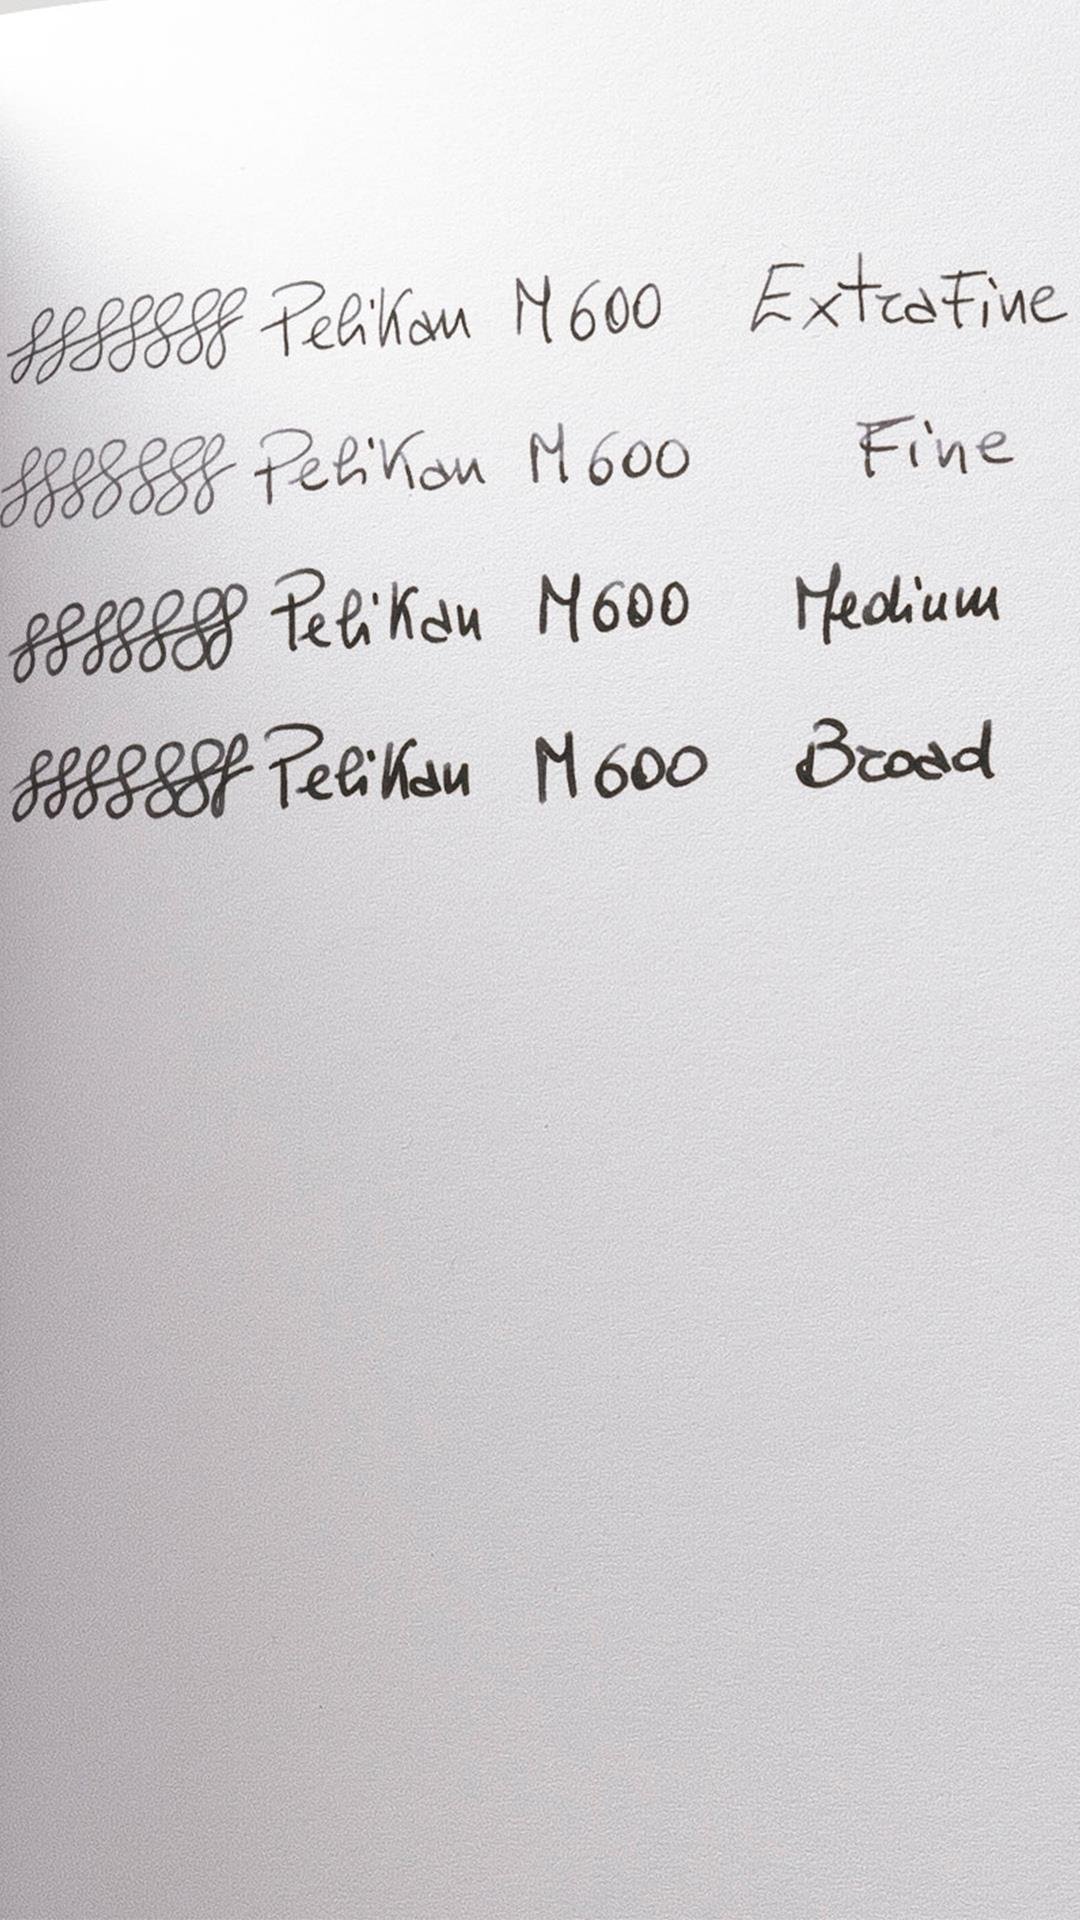 Pelikan M600 ExtraFine
Pelikan M600 Fine
Pelikan M600 Medium
Pelikan M600 Broad